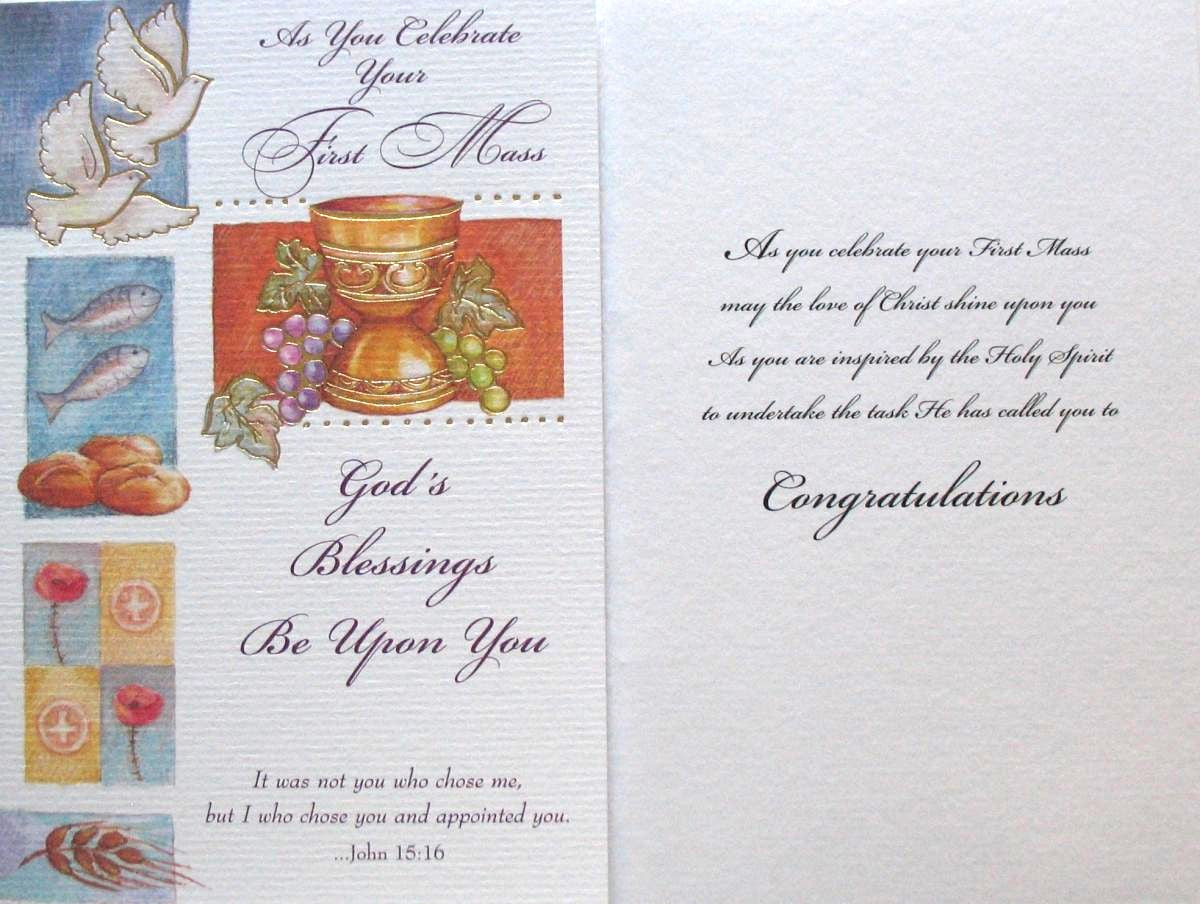 As You Celebrate
Your
First Mass
God's
Blessings
Be Upon You
It was not you who chose me,
but I who chose you and appointed you.
...John 15:16
As you celebrate your First Mass
may the love of Christ shine upon you
As you are inspired by the Holy Spirit
to undertake the task He has called you to
Congratulations